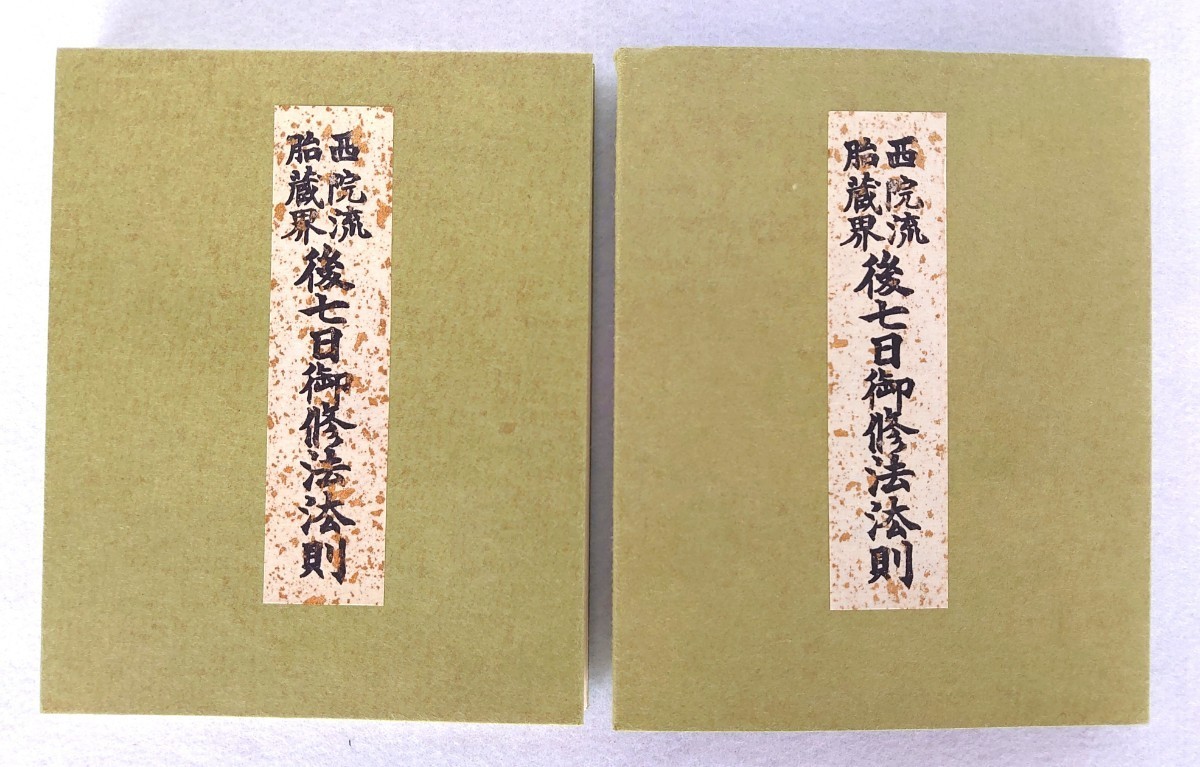 西院流
胎蔵界
後七日御修法法則
西院流
胎蔵界
後七日御修法法則